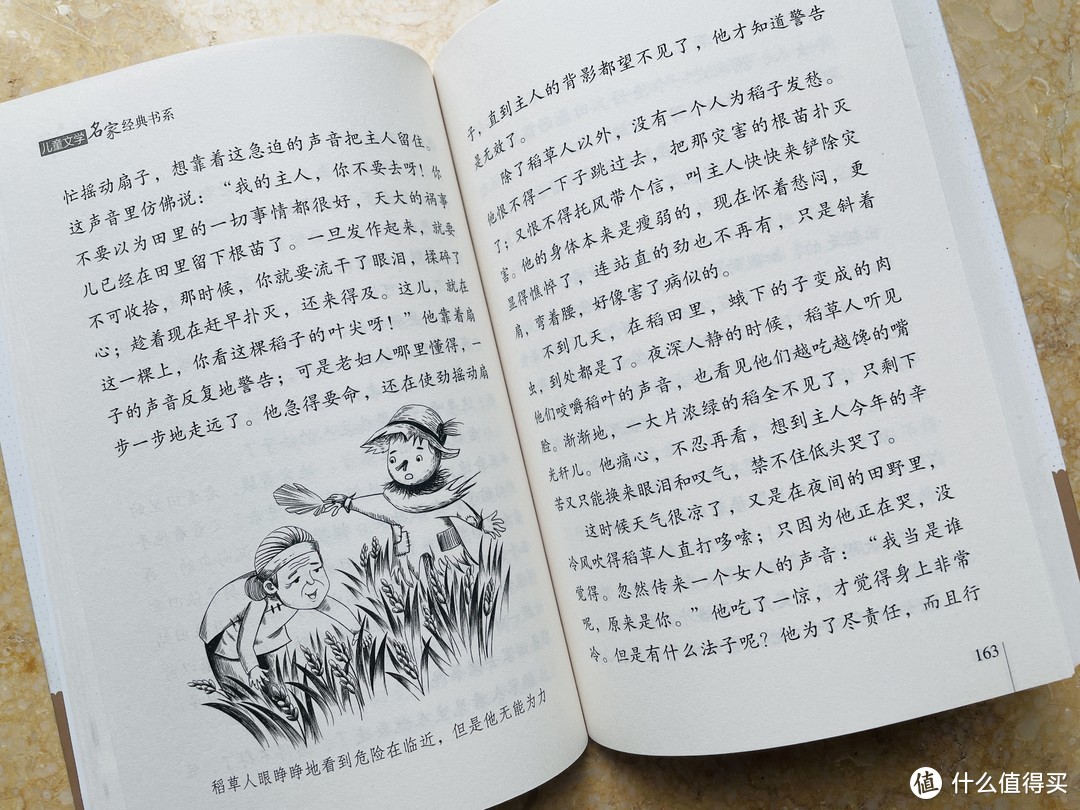 儿童文学名家经典书系
忙摇动扇子，想靠着这急迫的声音把主人留住。
这声音里仿佛说：“我的主人，你不要去呀！你
不要以为田里的一切事情都很好，天大的祸事
儿已经在田里留下根苗了。一旦发作起来，就要
不可收拾，那时候，你就要流干了眼泪，揉碎了
心；趁着现在赶早扑灭，还来得及。这儿，就在
这一棵上，你看这棵稻子的叶尖呀！”他靠着扇
子的声音反复地警告；可是老妇人哪里懂得，一
步一步地走远了。他急得要命，还在使劲摇动扇
稻草人眼睁睁地看到危险在临近，但是他无能为力
子，直到主人的背影都望不见了，他才知道警告
是无效了。
除了稻草人以外，没有一个人为稻子发愁。
他恨不得一下子跳过去，把那灾害的根苗扑灭
了；又恨不得托风带个信，叫主人快快来铲除灾
害。他的身体本来是瘦弱的，现在怀着愁闷，更
显得憔悴了，连站直的劲也不再有，只是斜着
肩，弯着腰，好像害了病似的。
不到几天，在稻田里，蛾下的子变成的肉
虫，到处都是了。夜深人静的时候，稻草人听见
他们咬嚼稻叶的声音，也看见他们越吃越馋的嘴
脸。渐渐地，一大片浓绿的稻全不见了，只剩下
光秆儿。他痛心，不忍再看，想到主人今年的辛
苦又只能换来眼泪和叹气，禁不住低头哭了。
这时候天气很凉了，又是在夜间的田野里，
冷风吹得稻草人直打哆嗦；只因为他正在哭，没
觉得。忽然传来一个女人的声音：“我当是谁
呢，原来是你。”他吃了一惊，才觉得身上非常
冷。但是有什么法子呢？他为了尽责任，而且行
163
值 什么值得买